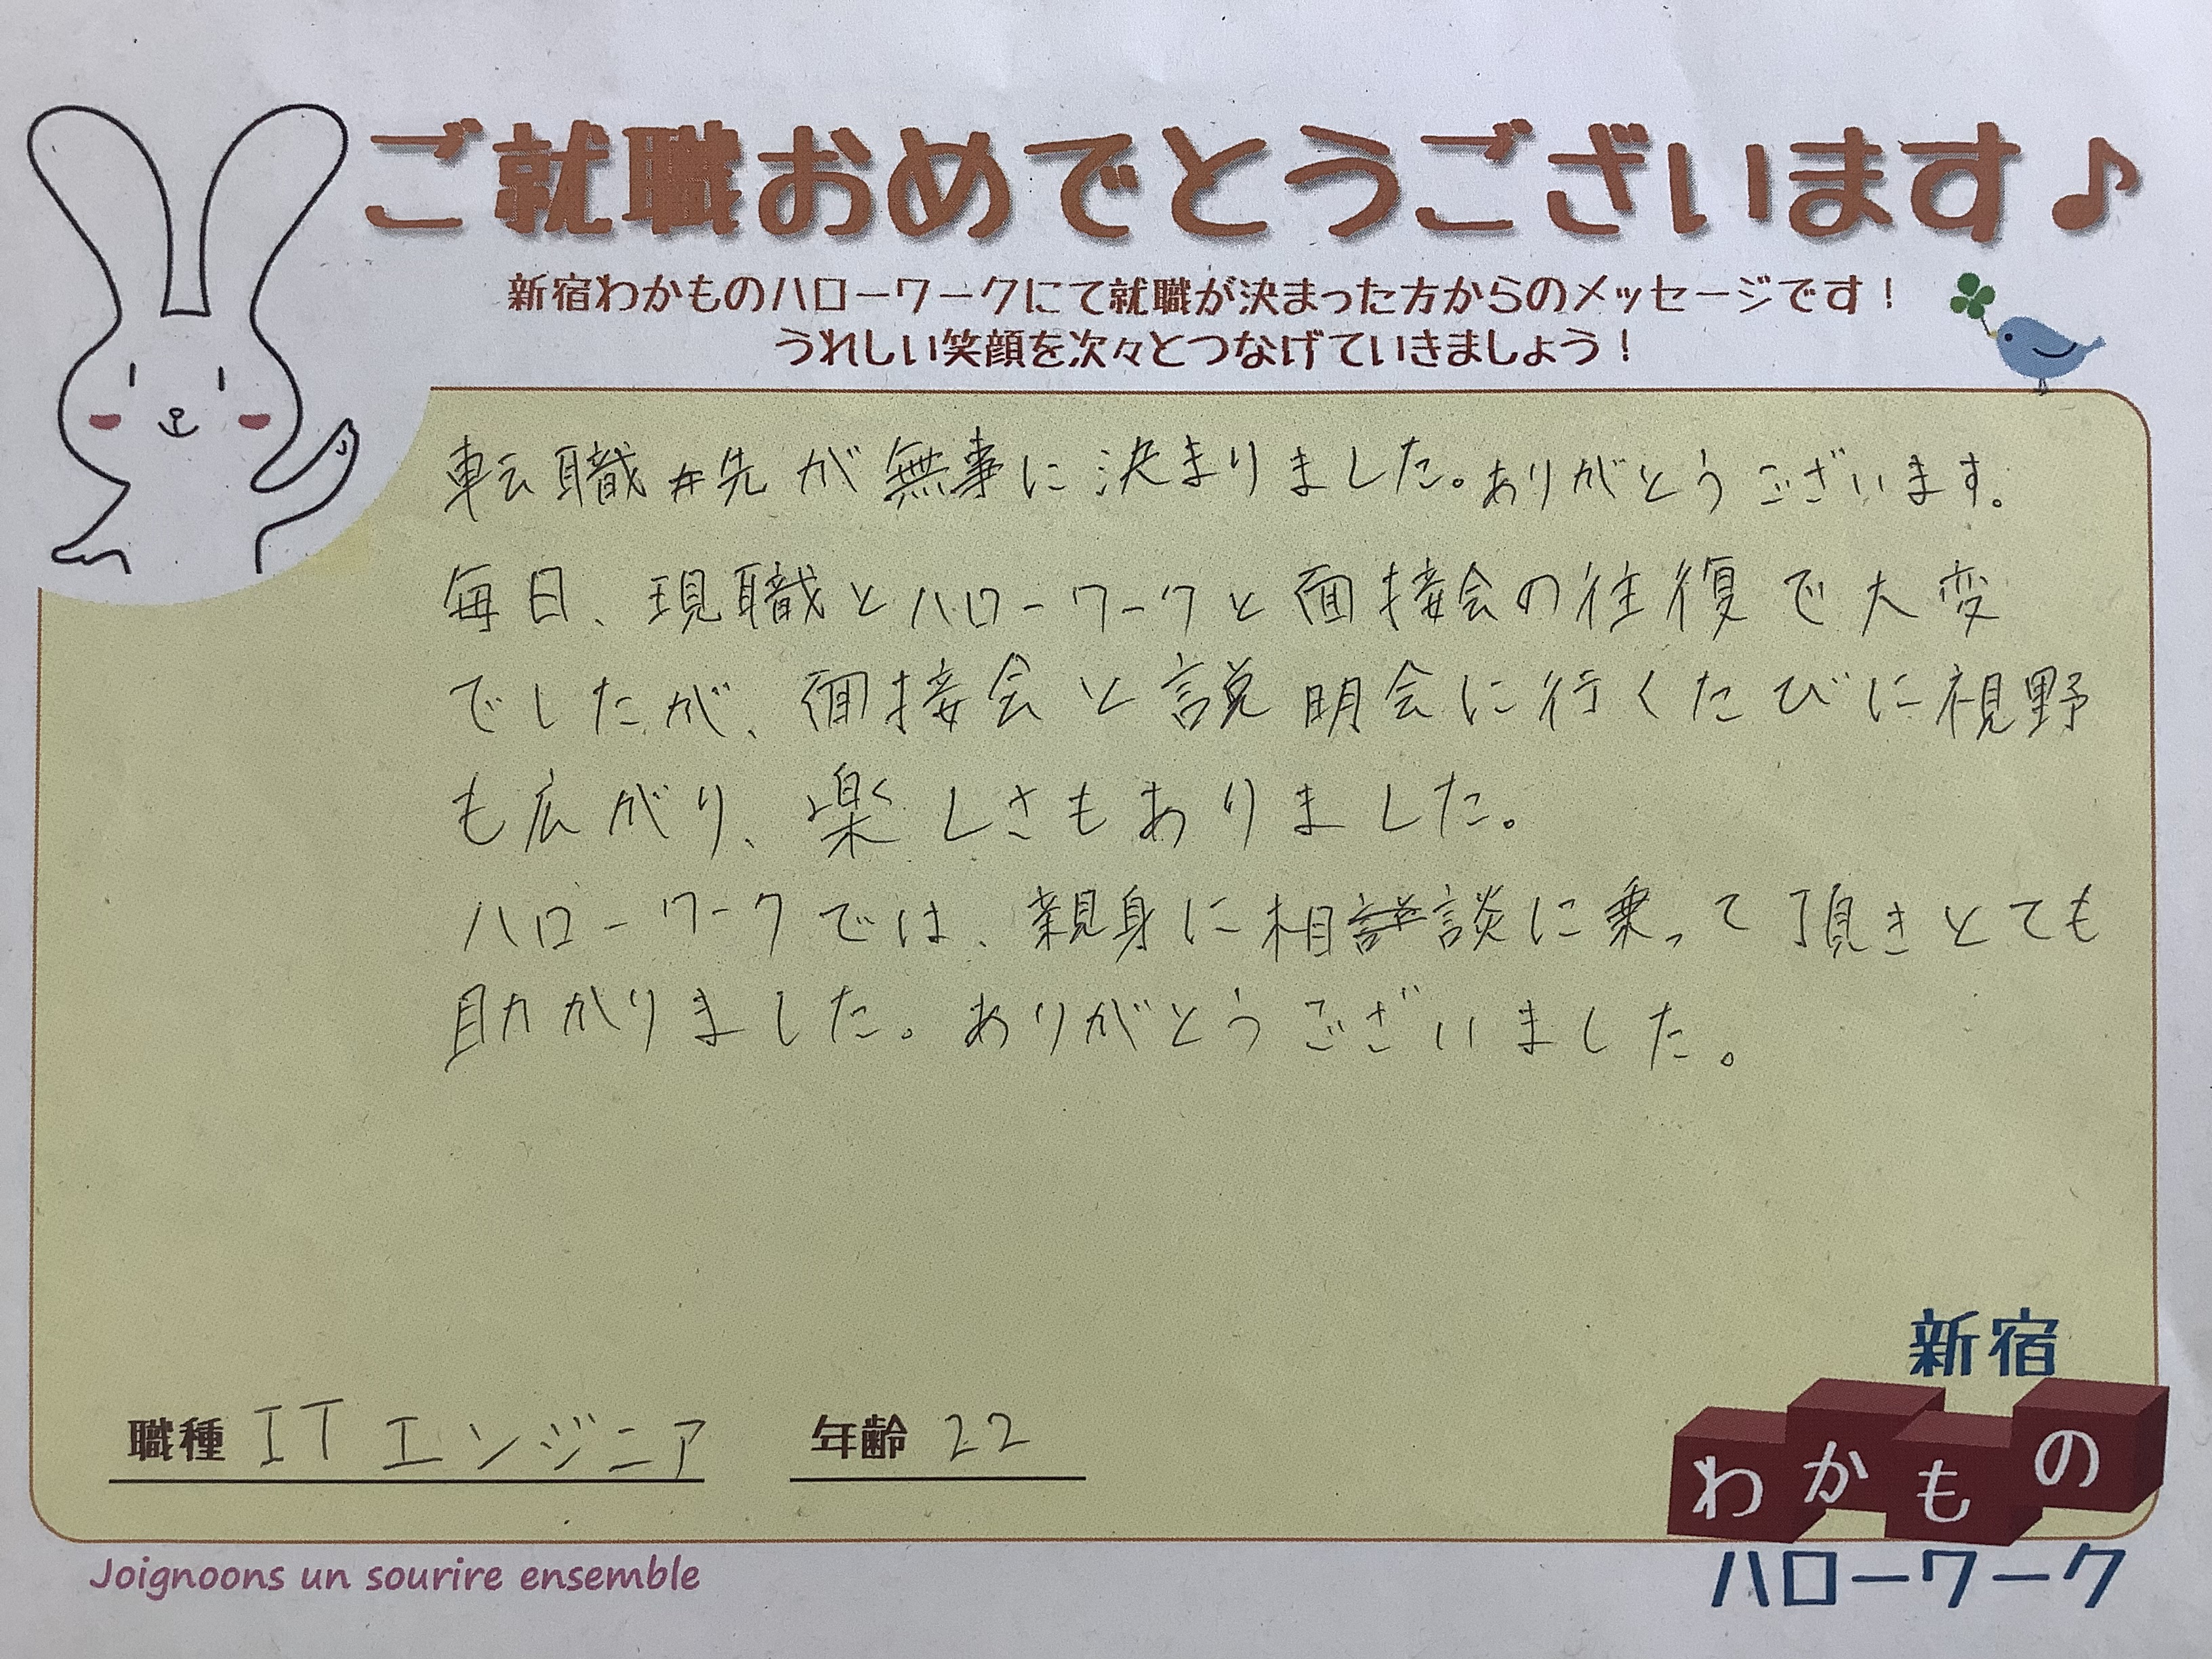 ご就職おめでとうございます♪
新宿わかものハローワークにて就職が決まった方からのメッセージです！
うれしい笑顔を次々とつなげていきましょう！
転職先が無事に決まりました。ありがとうございます。
毎日、現職とハローワークと面接会の往復で大変
でしたが、面接会と説明会に行くたびに視野
も広がり、楽しさもありました。
ハローワークでは、親身に相談に乗って頂きとても
助かりました。ありがとうございました。
職種 ITエンジニア 年齢 22
新宿
わかもの
ハローワーク
Joignoons un sourire ensemble